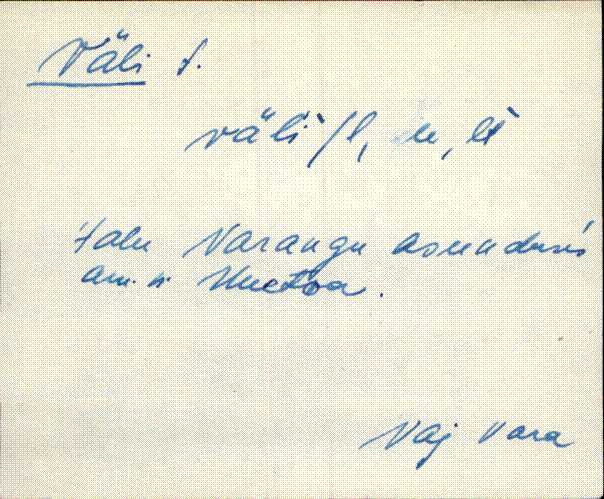 Väli t.
väli /l, le, lt
talu Varangu asunduses
am. n. Unetoa.
Vaj Vara